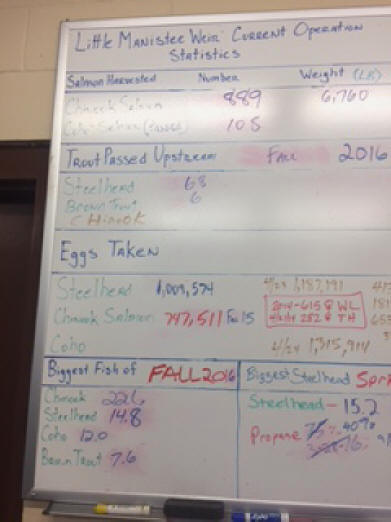 Little Manistee Weir: Current Operation
Statistics
Salmon Harvested Number Weight (LB)
Chinook Salmon 889 6,760
Coho Salmon 108
Trout Passed Upstream Fall 2016
Steelhead 68
Brown Trout 6
CHINOOK
Eggs Taken
Steelhead 1,009,574 4/23 1,187,191
Chinook Salmon 747,511 Fall 15
Coho 4/24 1,315,914
Biggest Fish of FALL 2016 Biggest Steelhead
Chinook 22.6 Steelhead - 15.2
Steelhead 14.8
Coho 12.0 Propane 75% 40%
Brown Trout 7.6